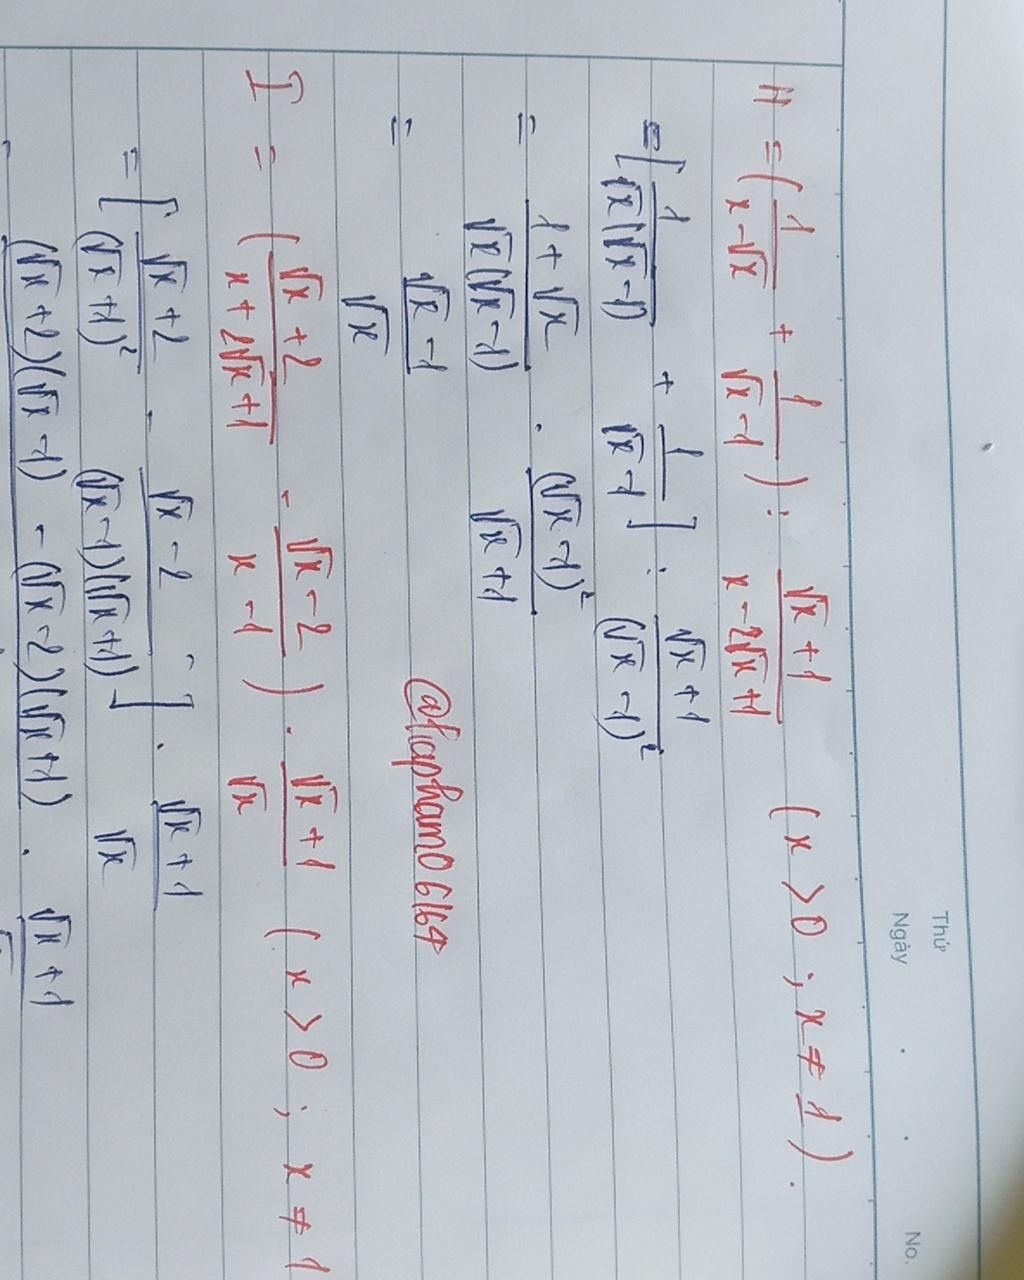 Thứ
Ngày . . No.
H = ( 1/(x - √x) + 1/(√x - 1) ) : (√x + 1)/(x - 2√x + 1) ( x > 0 ; x ≠ 1 ) .
= [ 1/(√x(√x - 1)) + 1/(√x - 1) ] : (√x + 1)/(√x - 1)²
= (1 + √x)/(√x(√x - 1)) . (√x - 1)²/(√x + 1)
= (√x - 1)/√x
@liapham06164
I = ( (√x + 2)/(x + 2√x + 1) - (√x - 2)/(x - 1) ) . (√x + 1)/√x ( x > 0 ; x ≠ 1
= [ (√x + 2)/(√x + 1)² - (√x - 2)/((√x - 1)(√x + 1)) ] . (√x + 1)/√x
(√x + 2)(√x - 1) - (√x - 2)(√x + 1) . √x + 1